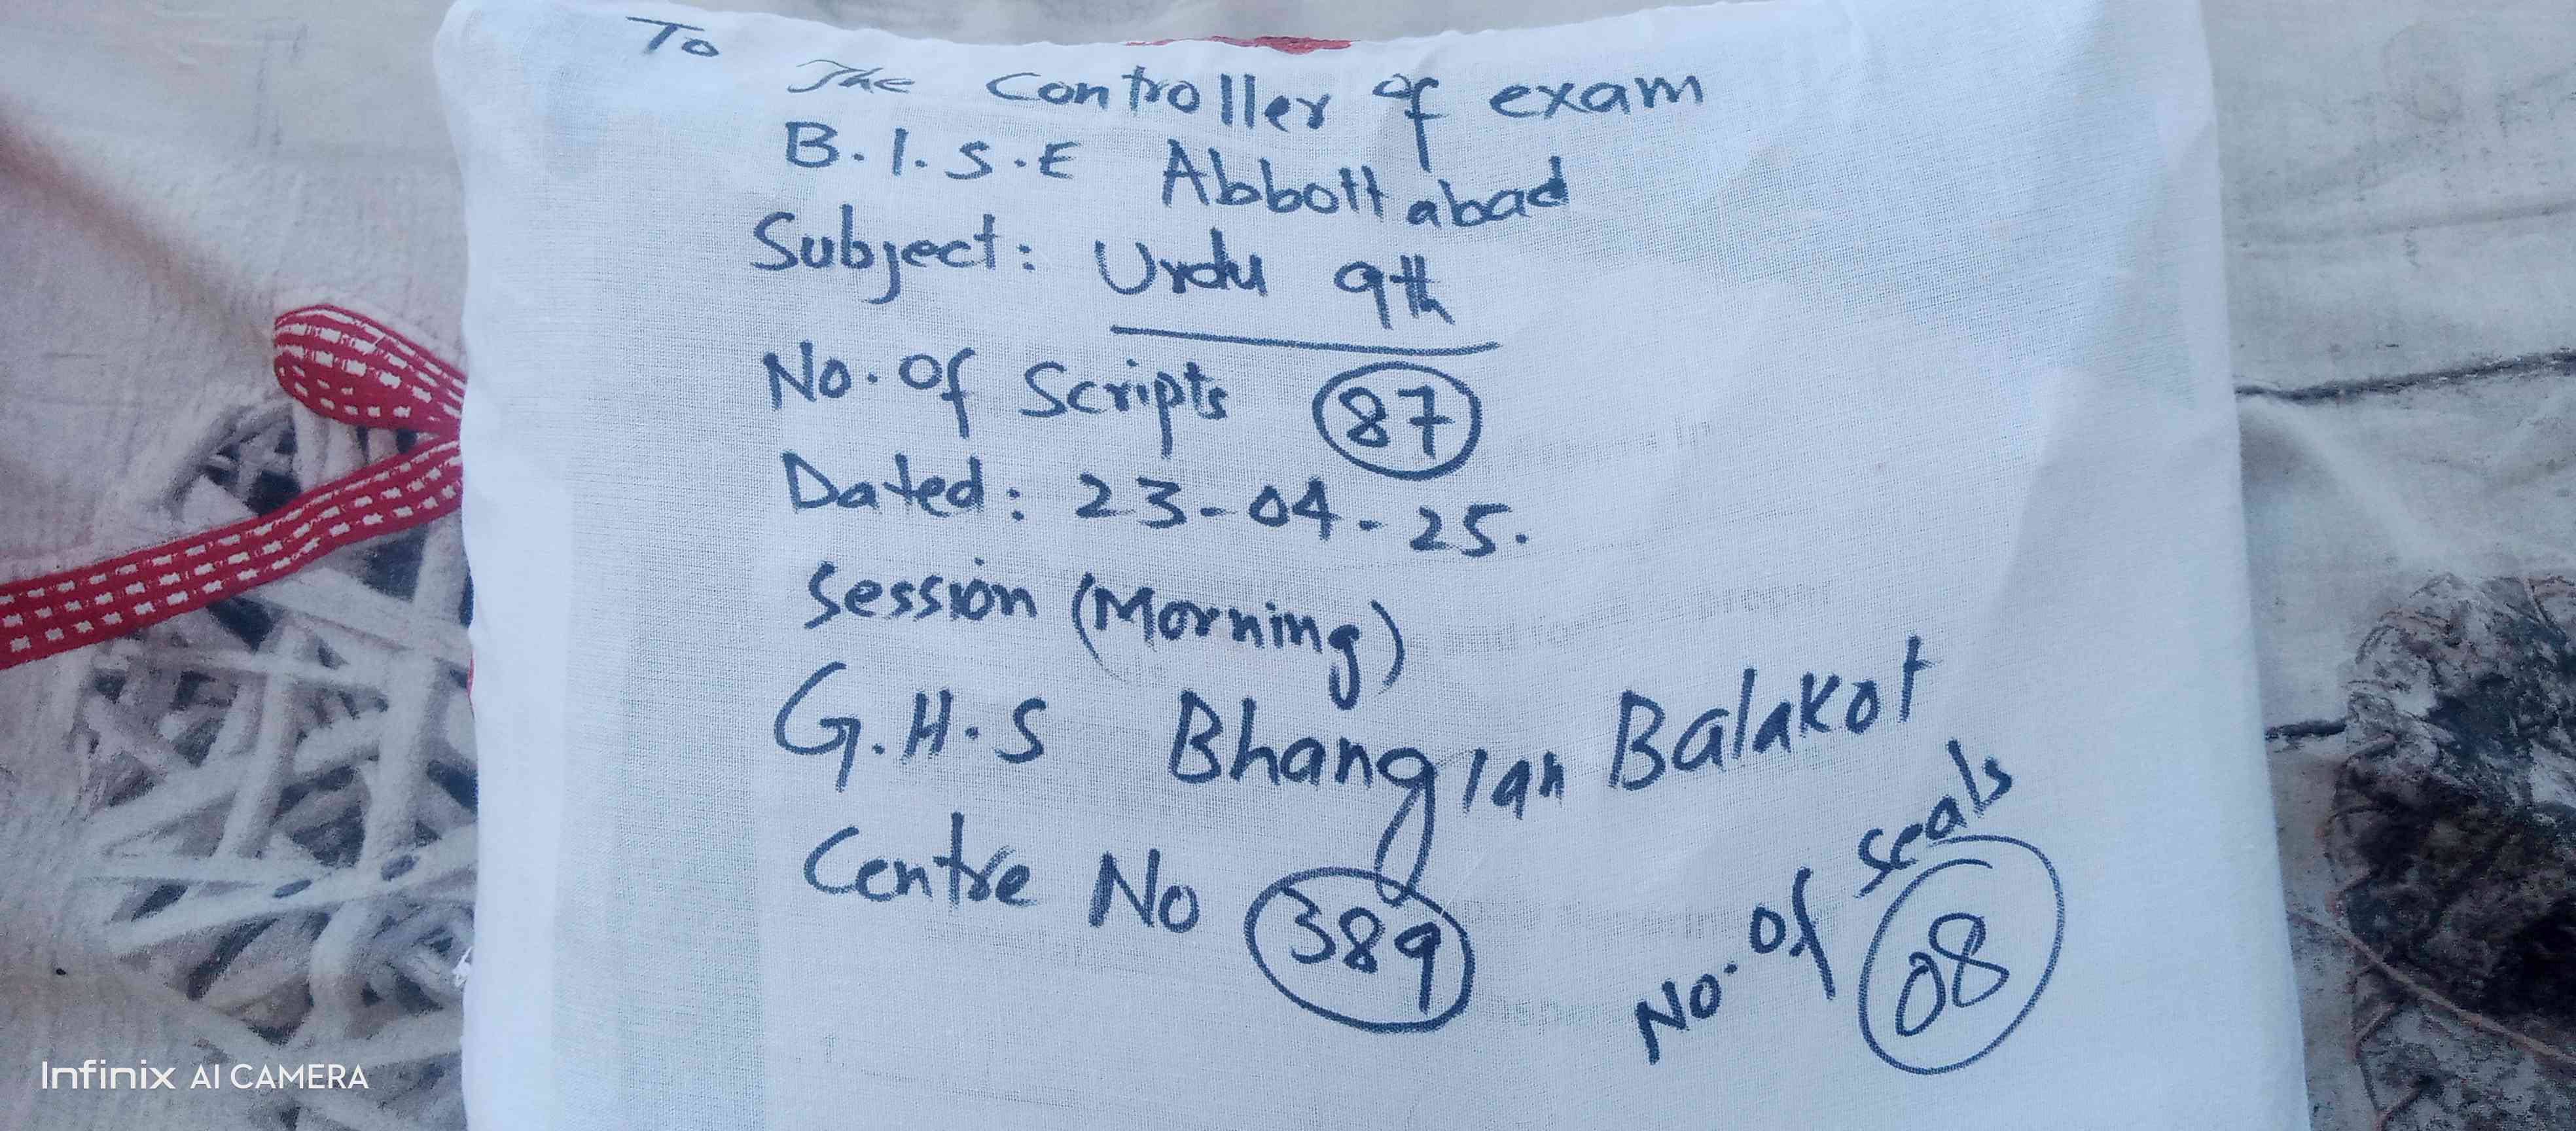 To
The Controller of exam
B.I.S.E Abbottabad
Subject: Urdu 9th
No. of Scripts 87
Dated: 23-04-25.
Session (Morning)
G.H.S Bhangian Balakot
Centre No 389
No. of seals 08
Infinix AI CAMERA